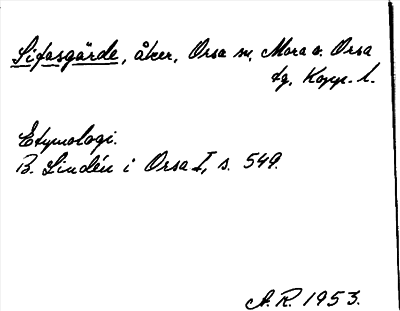 Sifasgärde, åker, Orsa sn, Mora o. Orsa
tg, Kopp. l.
Etymologi.
B. Lindén i Orsa I, s. 549.
A. R. 1953.